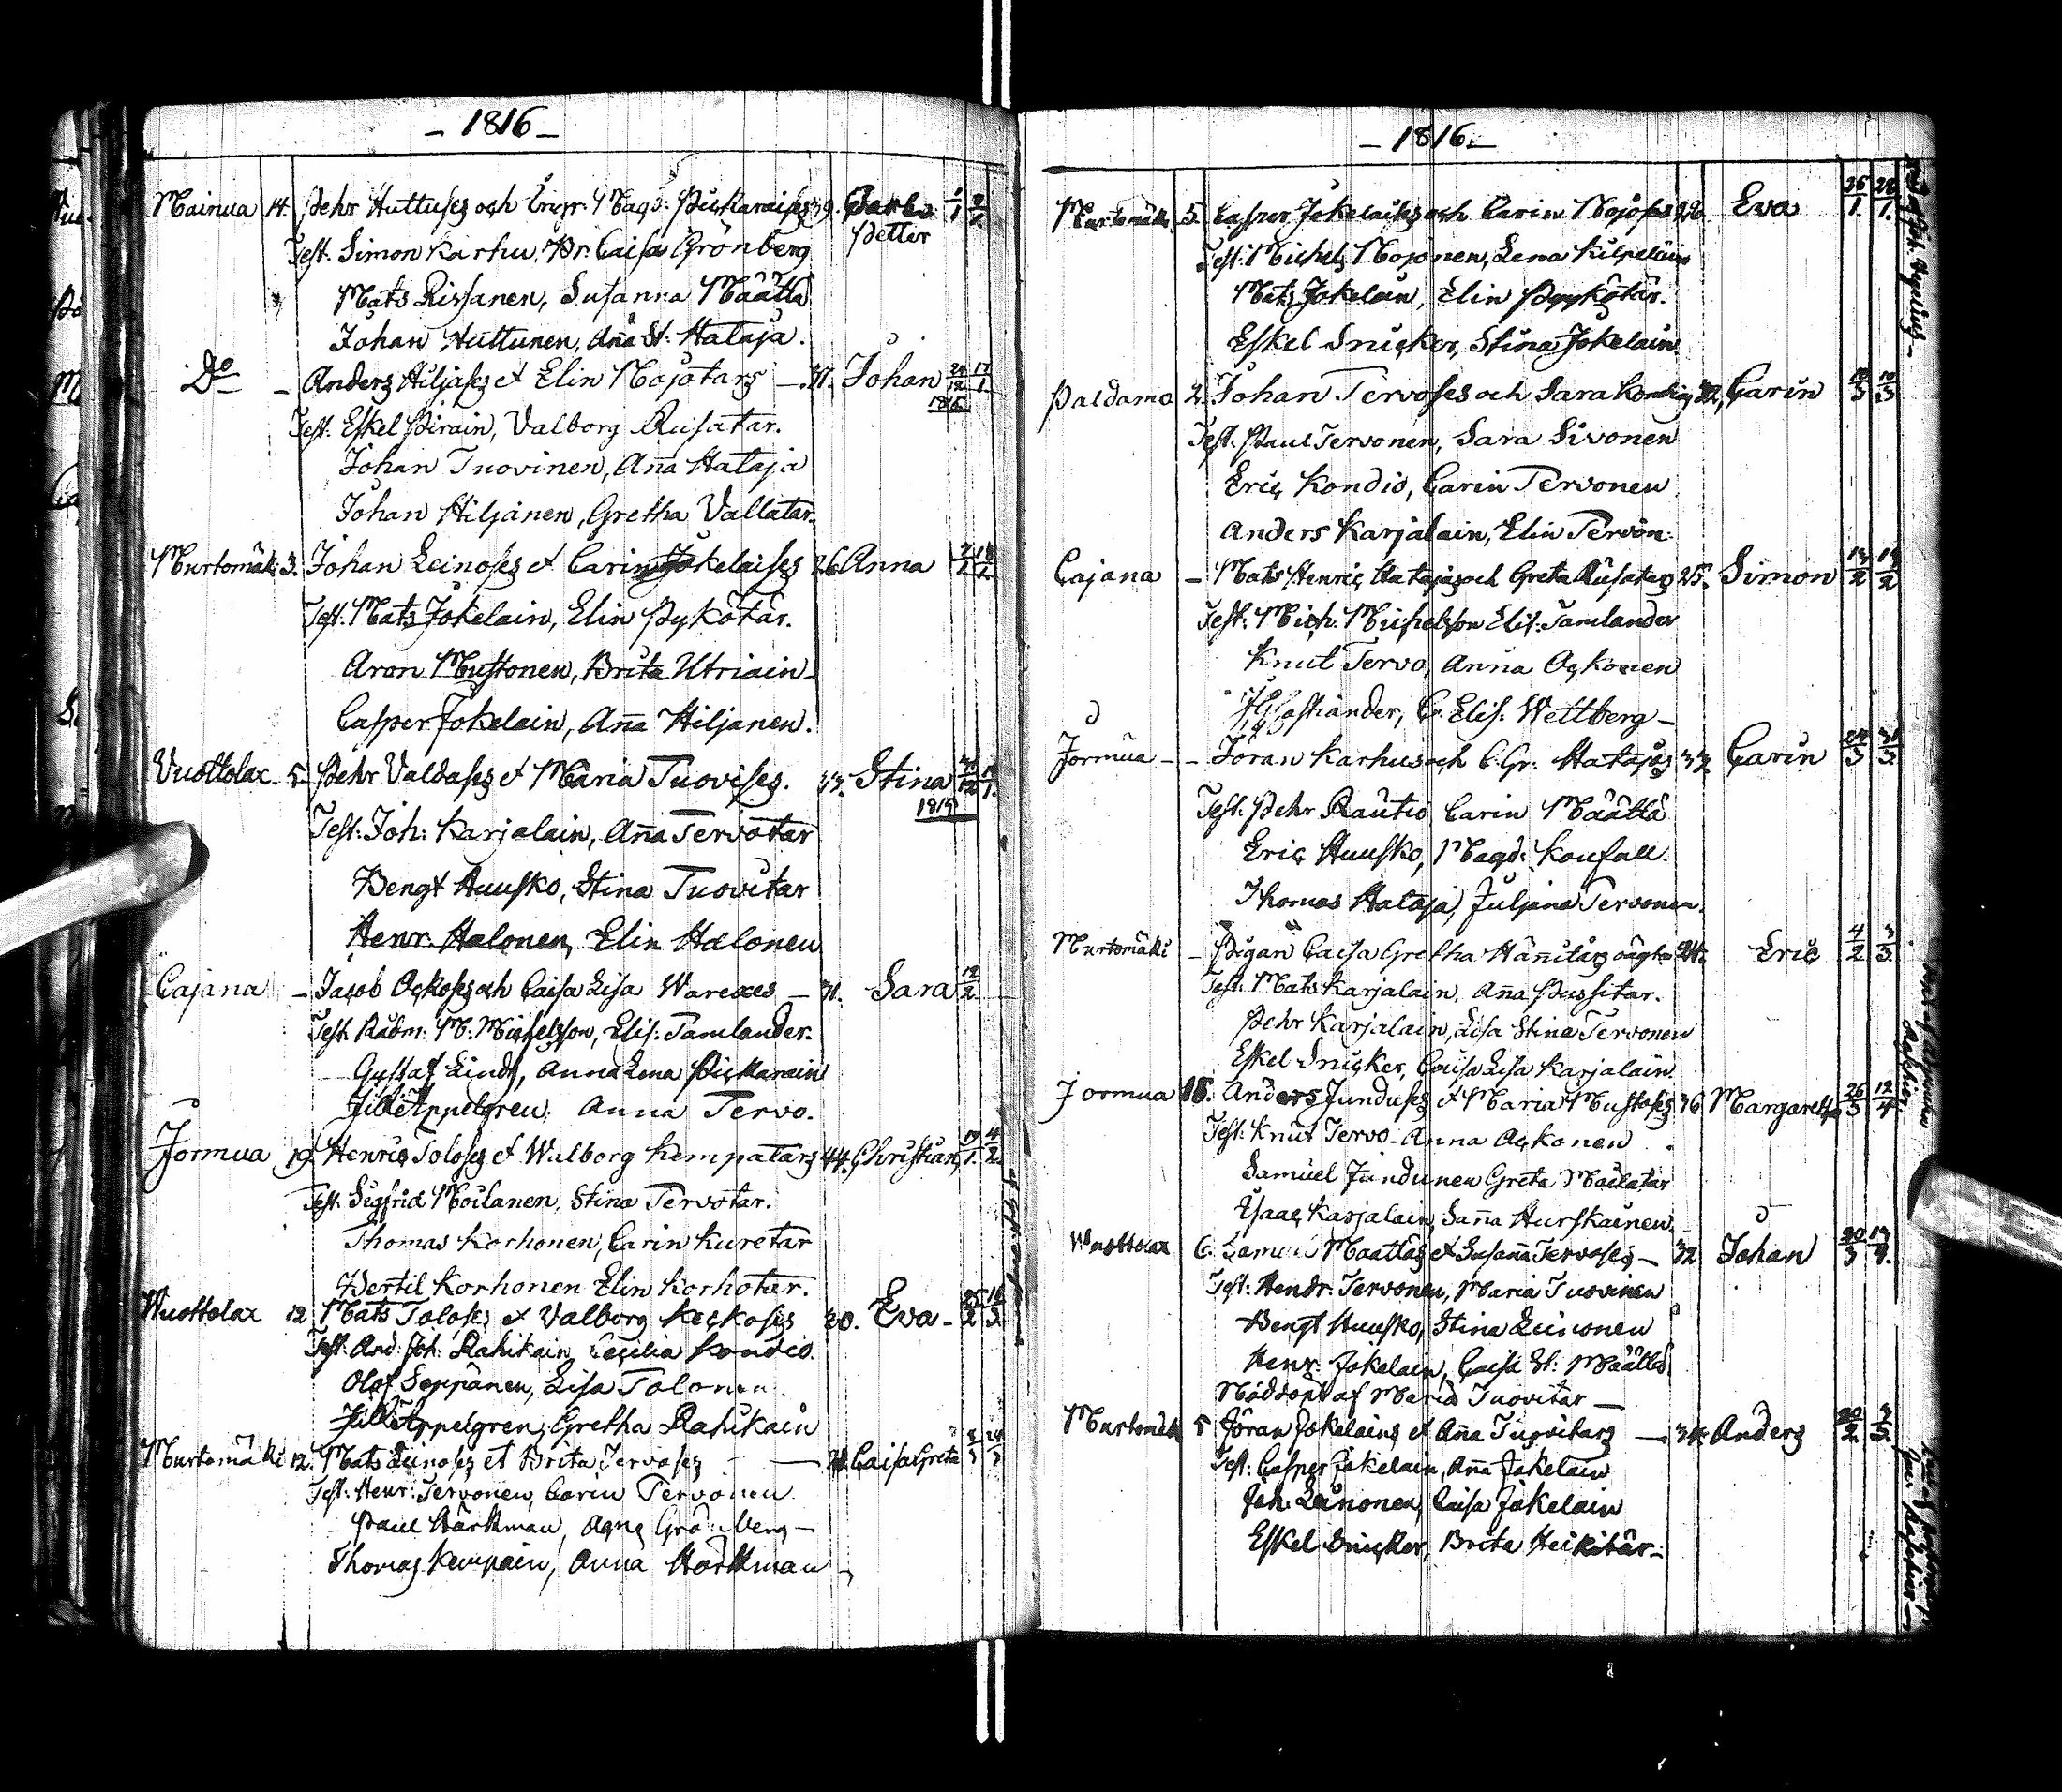 - 1816 -
Mainua 14. Pehr Huttuses och Magd: 39. Petter
Test. Simon Karhu, Br: Caisa Grönberg
Mats Rissanen, Susanna Määttä
Johan Huttunen, Aña St: Hataja.
Do - Anders Hiljases et Elin Mojotars - 37. Johan 17/1
1815
Test. Eskel Pirain, Valborg Rusatar.
Johan Tuovinen, Aña Hataja
Johan Hiljanen, Gretha Vallatar.
Murtomäki 3. Johan Leinoses et Carin Jokelaises 26 Anna
Test. Mats Jokelain, Elin Pykötär.
Aron Mustonen, Brita Utriain -
Casper Jokelain, Aña Hiljanen.
Vuottolax 5. Pehr Valdases et Maria Tuovises. 33. Stina
1815
Test: Joh: Karjalain, Aña Tervotar
Bengt Huusko, Stina Tuovitar
Henr. Halonen, Elin Halonen
Cajana - Jacob Ockoses och Caisa Lisa - 31. Sara 12/2
Test. Rådm: M: Michelsson, Elis: Tamlander.
Gustaf Lind, Anna Lena Pickarain
Appelgren: Anna Tervo.
Jormua 19. Henric Toloses et Walborg Kempatars 44. Christian 19/1 4/2
Test. Sigfrid Moilanen, Stina Tervotar.
Thomas Korhonen, Carin Kuretar
Bertil Korhonen Elin Korhotar.
Wuottolax 12 Mats Toloses et Valborg Keckoses 20. Eva -
Test. And: Joh: Rahikain, Cecilia Kondio.
Olof Seppänen, Lisa Tolonen.
Appelgren, Gretha Rahikain
Murtomäki 12. Mats Leinoses et Brita Tervoses - Caisa Greta
Test: Henr: Tervonen, Carin Tervonen.
Paul Härkman, Agne Grönberg -
Thomas Kempain, Anna Härkman
- 1816. -
Murtomäki 5. Casper Jokelaises och Carin Mojoses 28. Eva 28/1.
Test: Michel Mojonen, Lena Kilpeläin
Mats Jokelain, Elin Pyykötär.
Eskel Snicker, Stina Jokelain.
Paldamo 2. Johan Tervoses och Sara 32, Carin 10/3 10/3
Test: Paul Tervonen, Sara Sivonen
Eric Kondio, Carin Tervonen
Anders Karjalain, Elin Tervon:
Cajana - Mats Henric Hatajas och Greta Rusatars 25. Simon 13/2 19/2
Test: Mich: Michelsson Elis: Tamlander
Knut Tervo, Anna Ockonen
Castiander, C. Elis: Wettberg -
Jormua - - Jöran Karhus och C. Gr: Hatajas 37 Carin 24/3 31/3
Test: Pehr Rautio Carin Määttä
Eric Huusko, Magd: Koufall.
Thomas Hataja, Juljana Tervonen.
Murtomäki - Pigan Caisa Gretha 24. Eric 4/2 3/3.
Test. Mats Karjalain, Aña Pussitar.
Pehr Karjalain, Lisa Stina Tervonen
Eskel Snicker, Caisa Lisa Karjalain.
Jormua 18. Anders Junduses et Maria Mustoses 36. Margaretha 26/3 12/4
Test: Knut Tervo - Anna Ackonen
Samuel Jundunen Greta Moilatar
Isaac Karjalain, Saña Hurskainen.
Wuottolax 6. Samuel Maattas et Susaña Tervoses - 32 Johan 20/3 14/4.
Test: Hendr: Tervonen, Maria Tuovinen
Bengt Huusko, Stina Leinonen
Henr: Jokelain, Caisa St: Määttä.
Nöddöpt af Maria Tuovitar -
Murtomäki 5 Jöran Jokelains et Aña Tuovitars - 34. Anders 20/2 3/3.
Test: Casper Jokelain, Aña Jokelain
Joh: Leinonen, Caisa Jokelain
Eskel Snicker, Brita Heikitär -